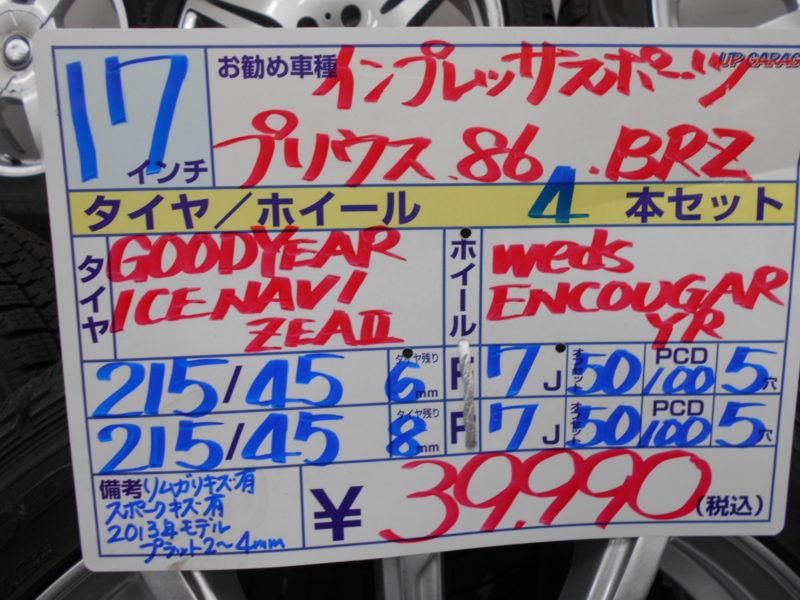 UP GARAGE
17 インチ
お勧め車種 インプレッサスポーツ
プリウス .86 .BRZ
タイヤ/ホイール 4 本セット
タイヤ GOODYEAR
ICE NAVI
ZEAII
ホイール weds
ENCOUGAR
YR
215/45 タイヤ残り 6mm 7J オフセット 50 PCD 100 5穴
215/45 タイヤ残り 8mm 7J オフセット 50 PCD 100 5穴
備考 リムガリキズ有
スポークキズ有
2013年モデル
プラット2〜4mm
¥39,990(税込)